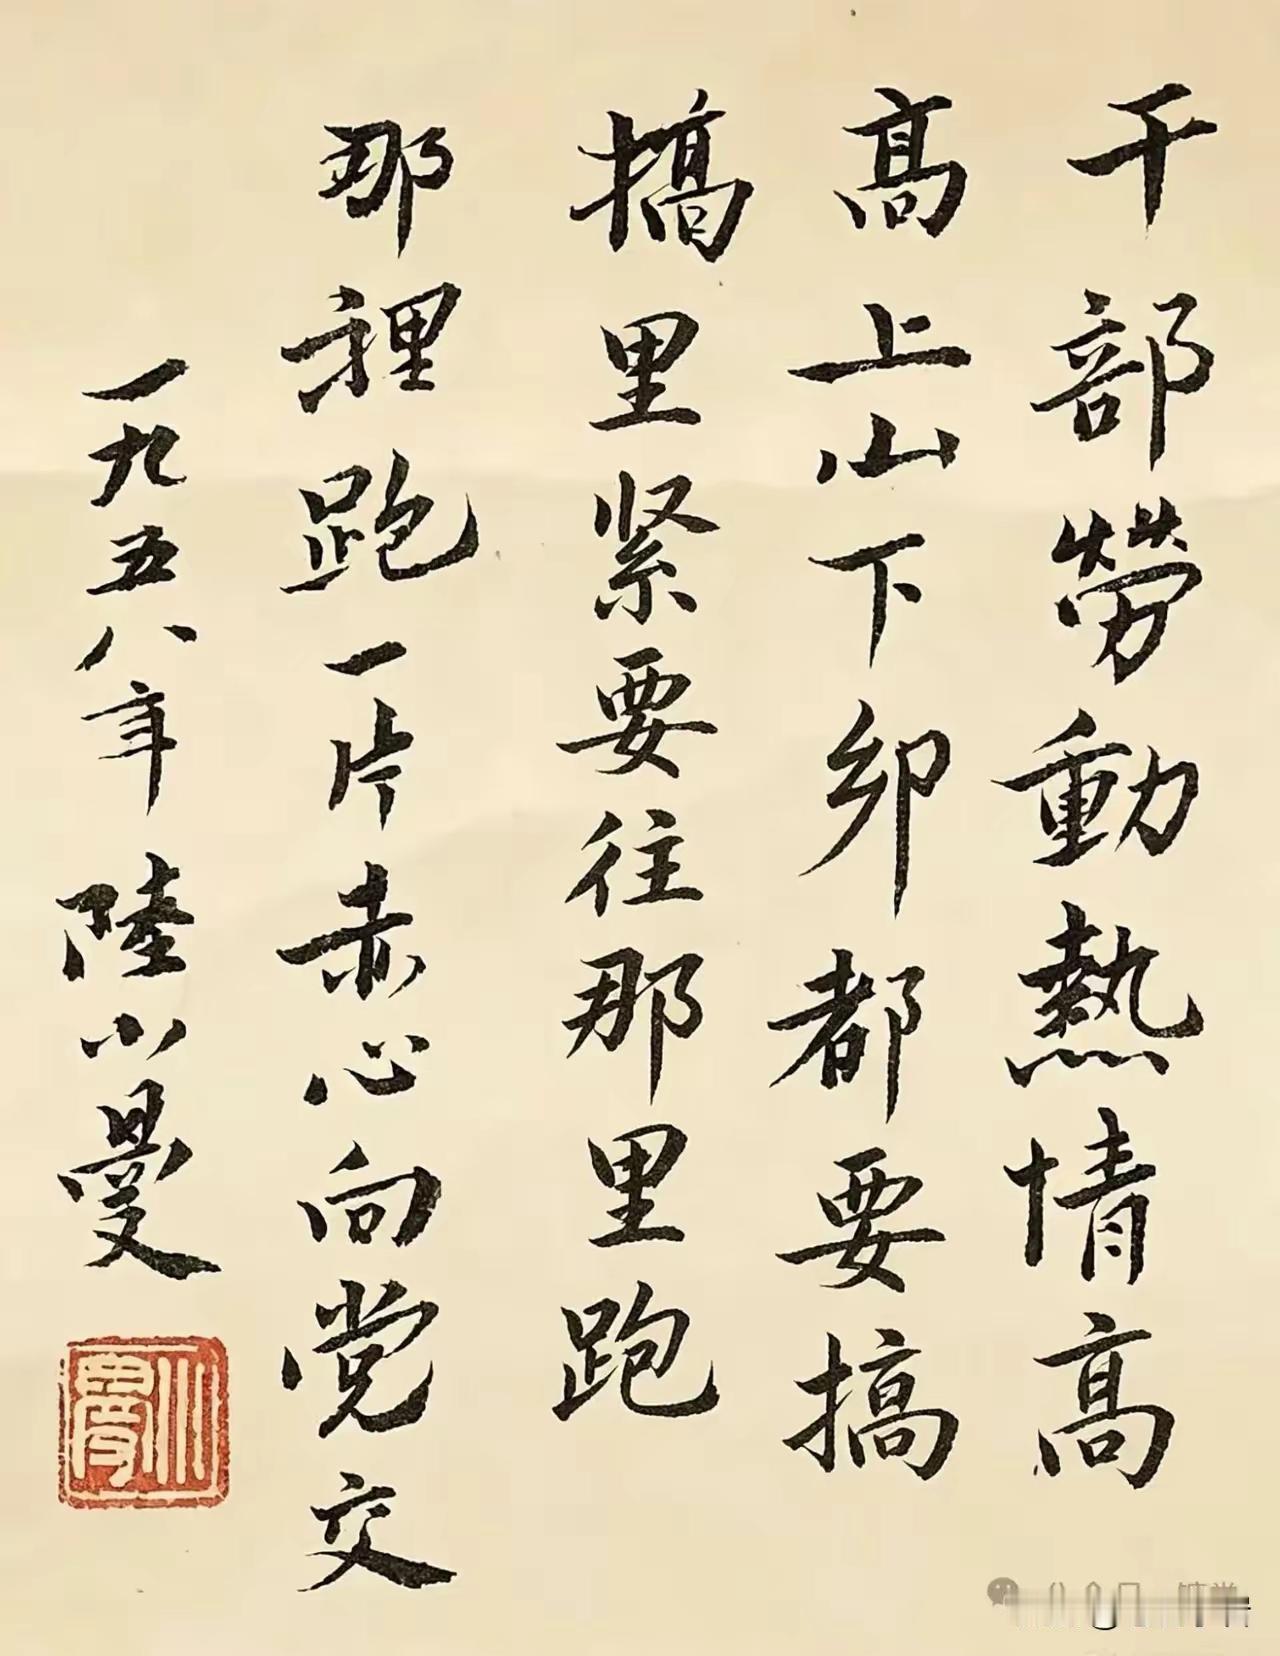 干部劳動熱情高
高上山下鄉都要搞
搞里紧要往那里跑
那裡跑一片赤心向党交
一九五八年 陸小曼
小曼